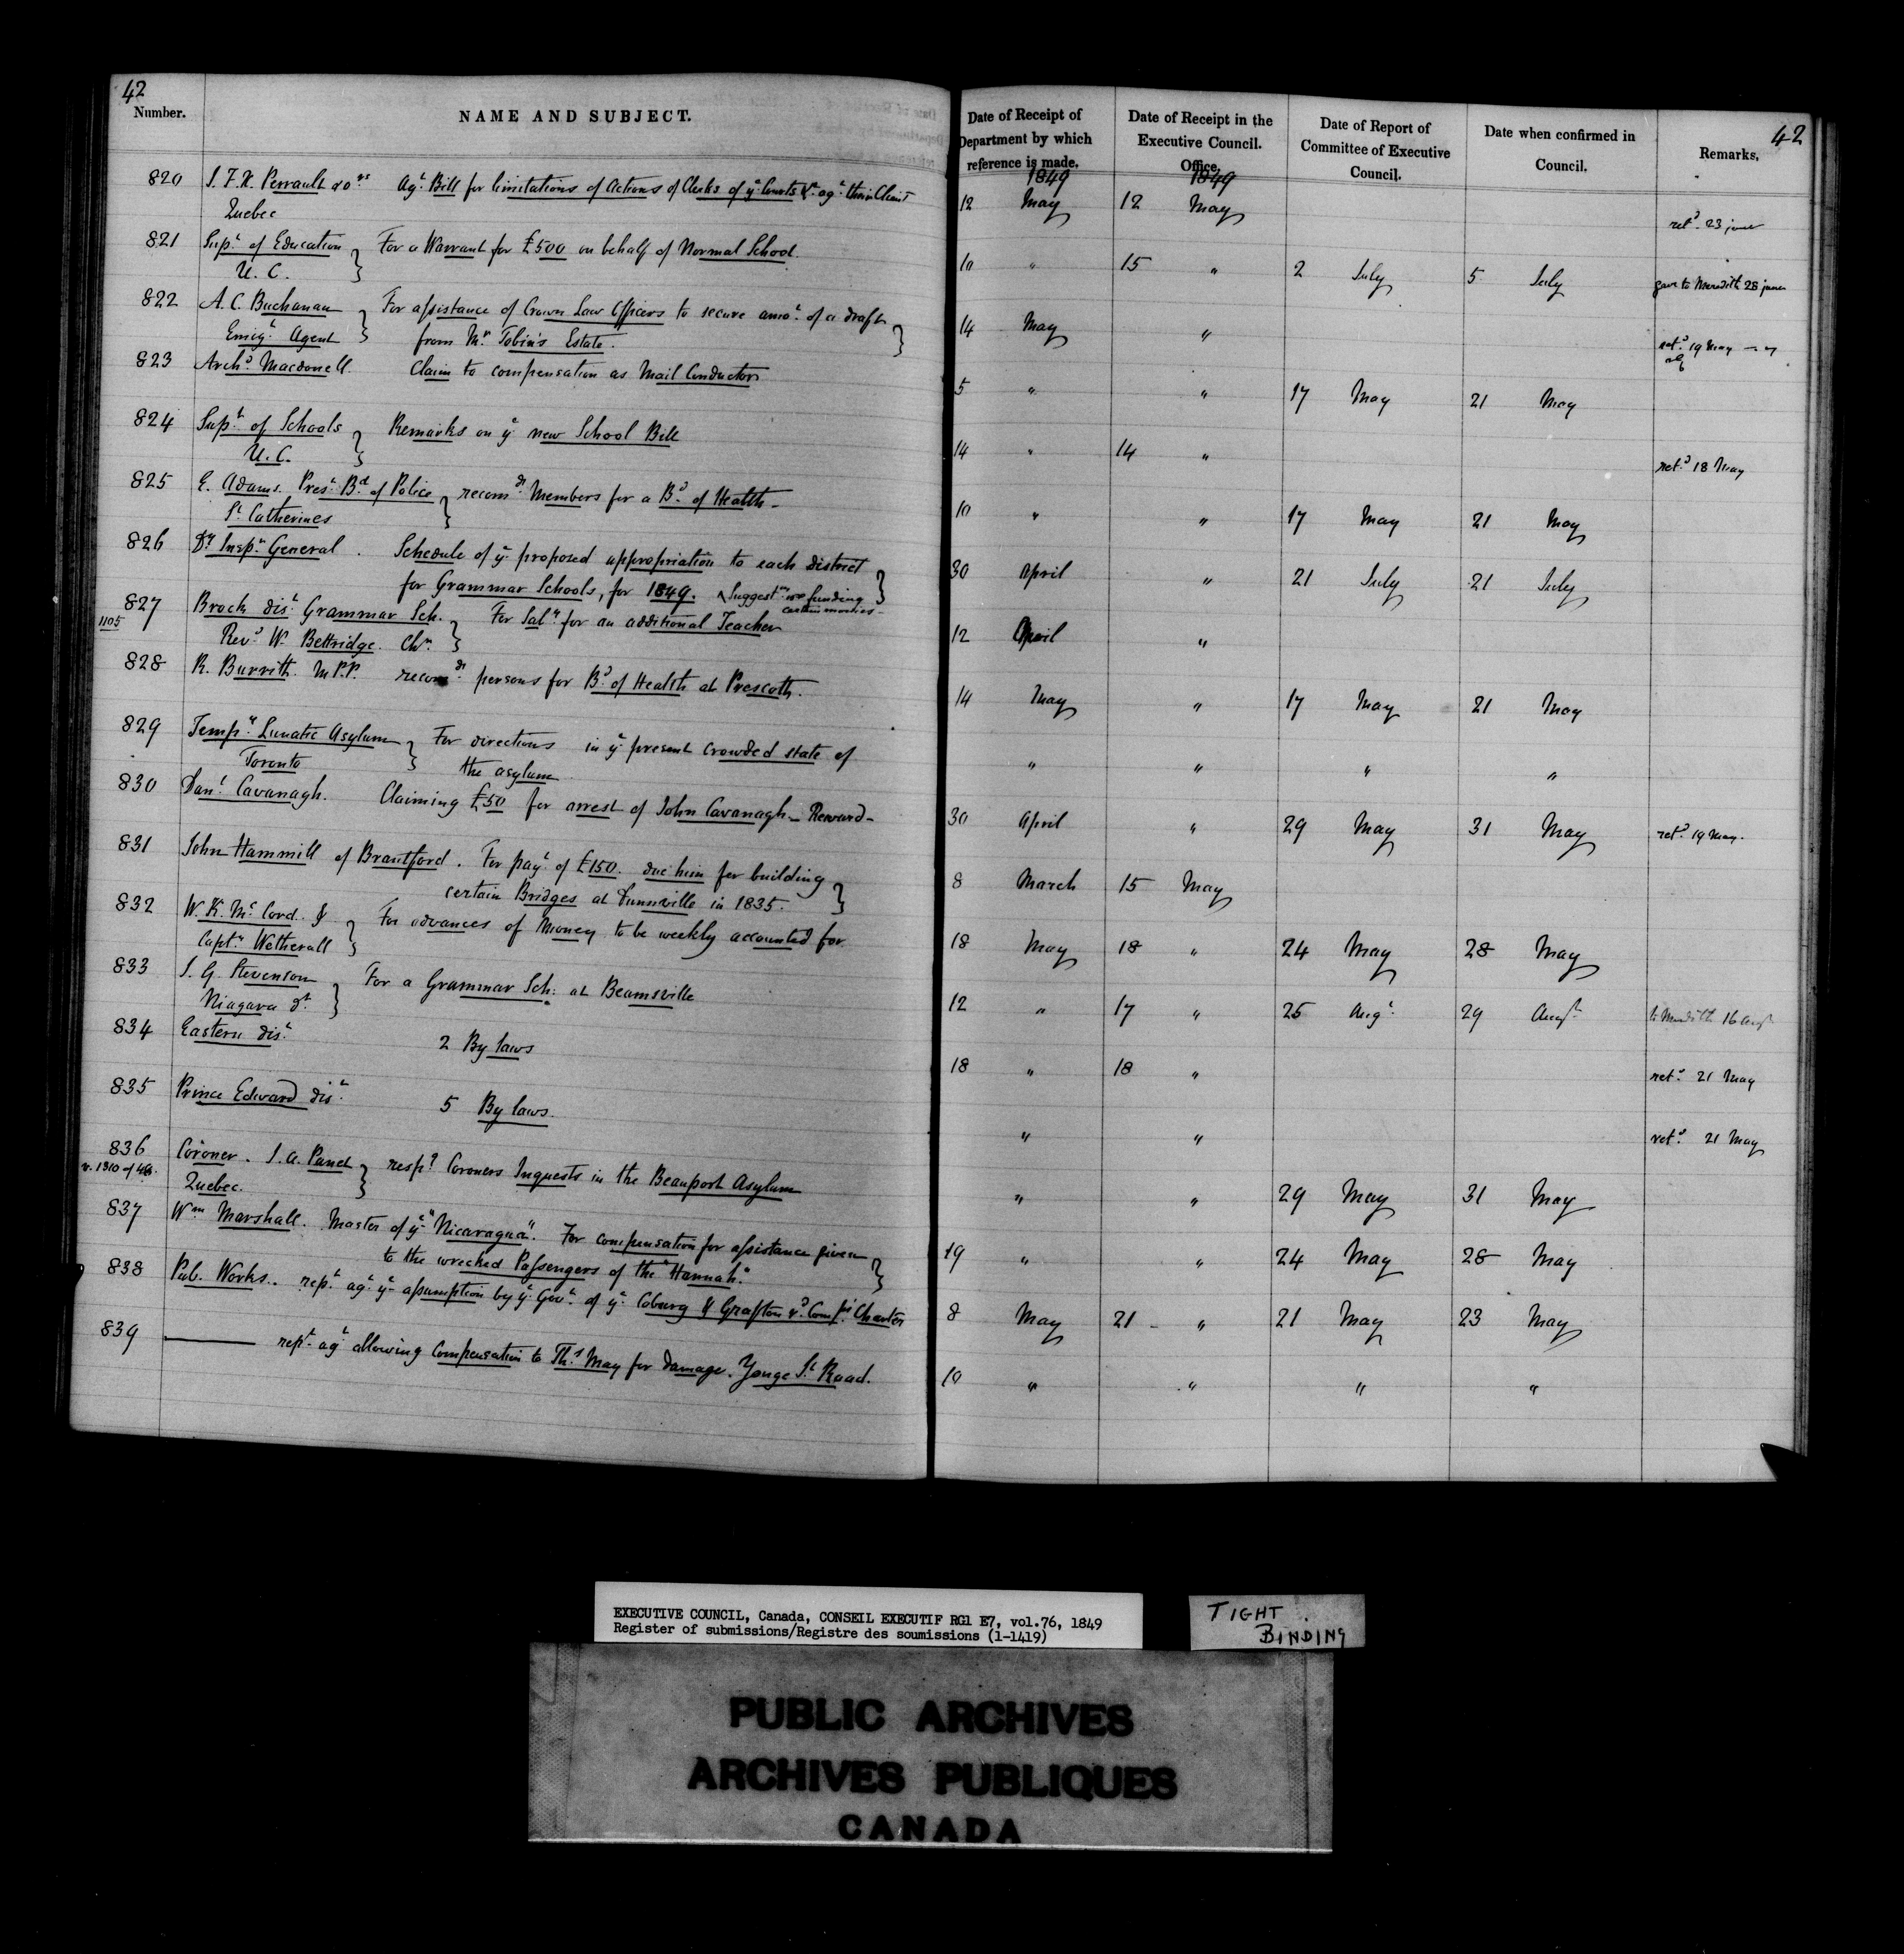 42
Number.
NAME AND SUBJECT.
820 J. F. X. Perrault & ors Agt Bill for limitations of Actions of Clerks of ye Courts &c agt their Client
Quebec
821 Supt of Education } For a Warrant for £500 on behalf of Normal School.
U. C.
822 A. C. Buchanan } For assistance of Crown Law Officers to secure amot of a draft }
Emigt Agent from Mr Tobin's Estate.
823 Archd Macdonell. Claim to compensation as Mail Conductor
824 Supt of Schools } Remarks on ye new School Bill
U. C.
825 E. Adams. Prest Bd of Police } recomdg Members for a Bd of Health -
St Catherines
826 Dy Inspr General. Schedule of ye proposed appropriation to each district }
for Grammar Schools, for 1849. Suggestns funding
certain monies -
827 Brock dist Grammar Sch. } For Saly for an additional Teacher
1105 Revd W. Bettridge. Chn.
828 R. Burritt. M.P.P. recomdg persons for Bd of Health at Prescott.
829 Tempy Lunatic Asylum } For directions in ye present crowded state of
Toronto the asylum
830 Danl Cavanagh. Claiming £50 for arrest of John Cavanagh - Reward -
831 John Hammill of Brantford. For payt of £150. due him for building }
certain Bridges at Dunnville in 1835.
832 W. K. McCord. & } For advances of Money to be weekly accounted for
Captn Wetherall
833 J. G. Stevenson } For a Grammar Sch: at Beamsville
Niagara dt
834 Eastern dist 2 By laws
835 Prince Edward dist 5 By laws.
836 Coroner. J. A. Panet } respg Coroners Inquests in the Beauport Asylum
v. 1310 of 48. Quebec.
837 Wm Marshall. Master of ye "Nicaragua". For compensation for assistance given }
to the wrecked Passengers of the "Hannah".
838 Pub. Works. rept agt ye assumption by ye Govt of ye Coburg & Grafton Rd Compys Charter
839 ——— rept agt allowing Compensation to Ths May for damage. Yonge St Road.
42
Date of Receipt of Department by which reference is made.
Date of Receipt in the Executive Council. Office.
Date of Report of Committee of Executive Council.
Date when confirmed in Council.
Remarks.
1849 1849
12 May 12 May retd 23 June
10 " 15 " 2 July 5 July gave to Meredith 28 June
14 May " retd 19 May
5 " " 17 May 21 May
14 " 14 " retd 18 May
10 " " 17 May 21 May
30 April " 21 July 21 July
12 April "
14 May " 17 May 21 May
" " " "
30 April " 29 May 31 May retd 19 May.
8 March 15 May
18 May 18 " 24 May 28 May
12 " 17 " 25 Augt 29 Augt to Meredith 16 Augt
18 " 18 " retd 21 May
" " retd 21 May
" " 29 May 31 May
19 " " 24 May 28 May
8 May 21 - " 21 May 23 May
10 " " " "
EXECUTIVE COUNCIL, Canada, CONSEIL EXECUTIF RG1 E7, vol.76, 1849
Register of submissions/Registre des soumissions (1-1419)
TIGHT
BINDING
PUBLIC ARCHIVES
ARCHIVES PUBLIQUES
CANADA